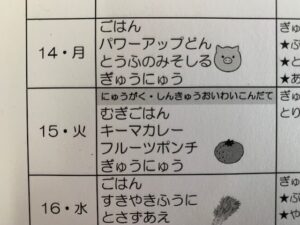 14・月
ごはん
パワーアップどん
とうふのみそしる
ぎゅうにゅう
にゅうがく・しんきゅうおいわいこんだて
15・火
むぎごはん
キーマカレー
フルーツポンチ
ぎゅうにゅう
16・水
ごはん
すきやきふうに
とさずあえ
ぎゅ
★ぶ
★と
★あ
ぎゅ
とり
ぎゅ
★ぶ